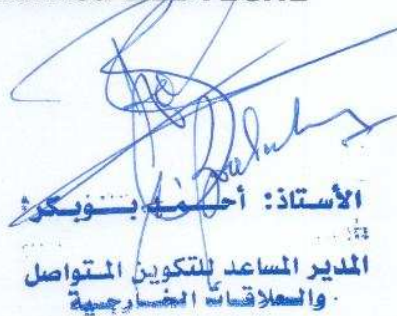 الأستاذ: أحمد بوبكر
المدير المساعد للتكوين المتواصل
والعلاقات الخارجية